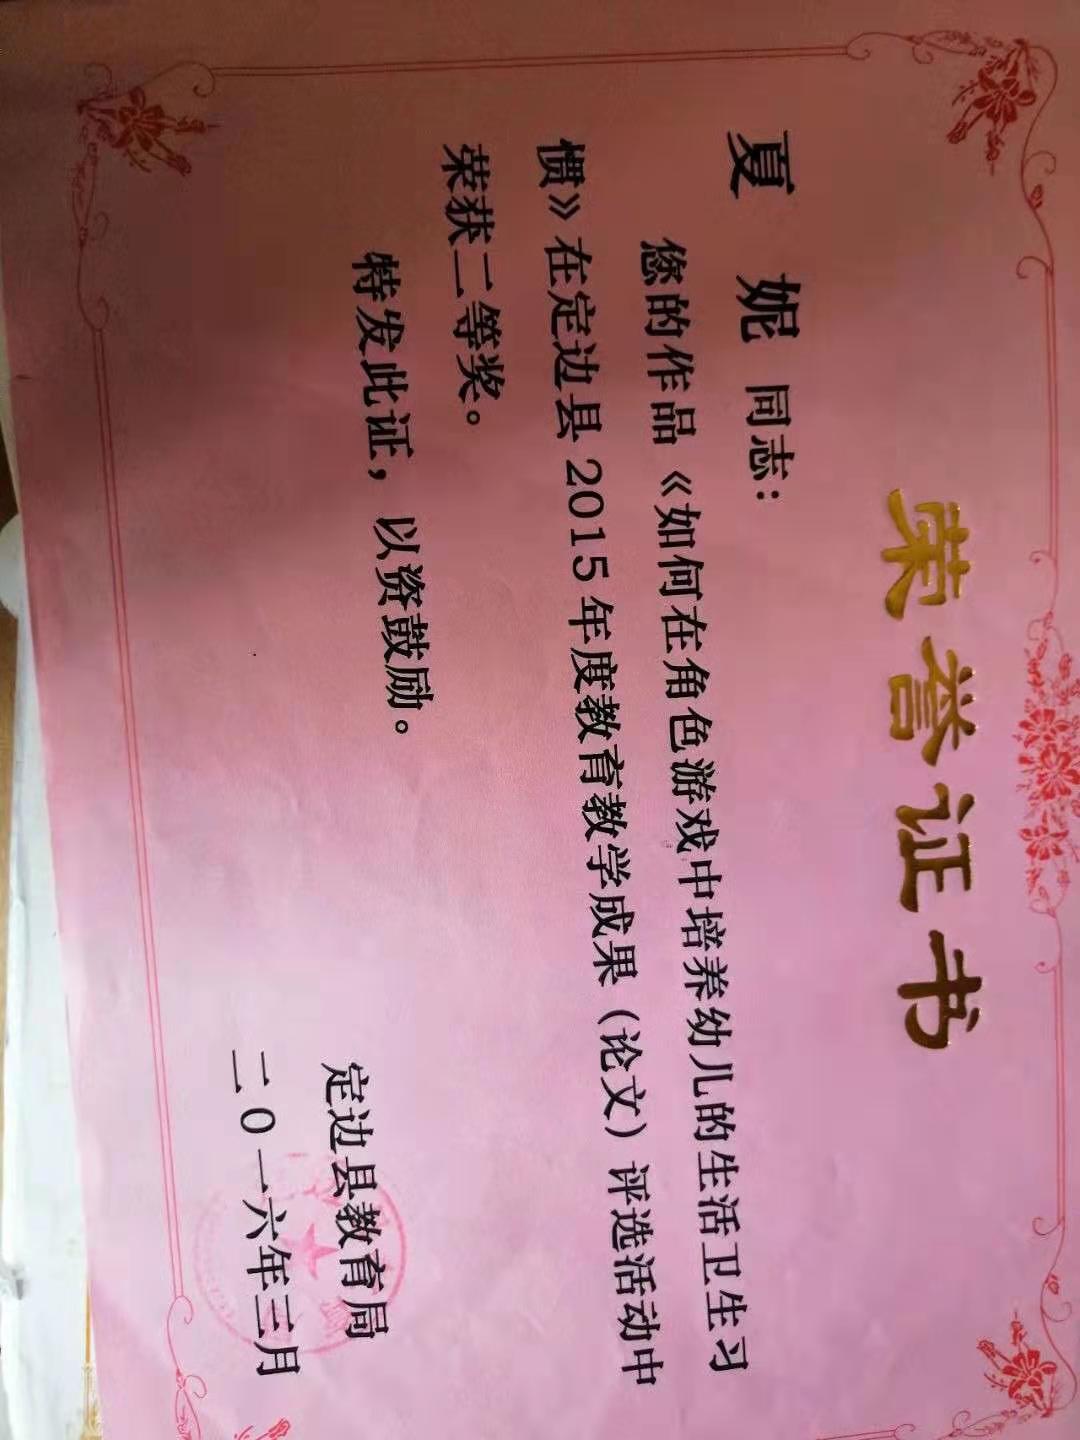 荣誉证书
夏 妮 同志：
您的作品《如何在角色游戏中培养幼儿的生活卫生习
惯》在定边县2015年度教育教学成果（论文）评选活动中
荣获二等奖。
特发此证，以资鼓励。
定边县教育局
二0一六年三月